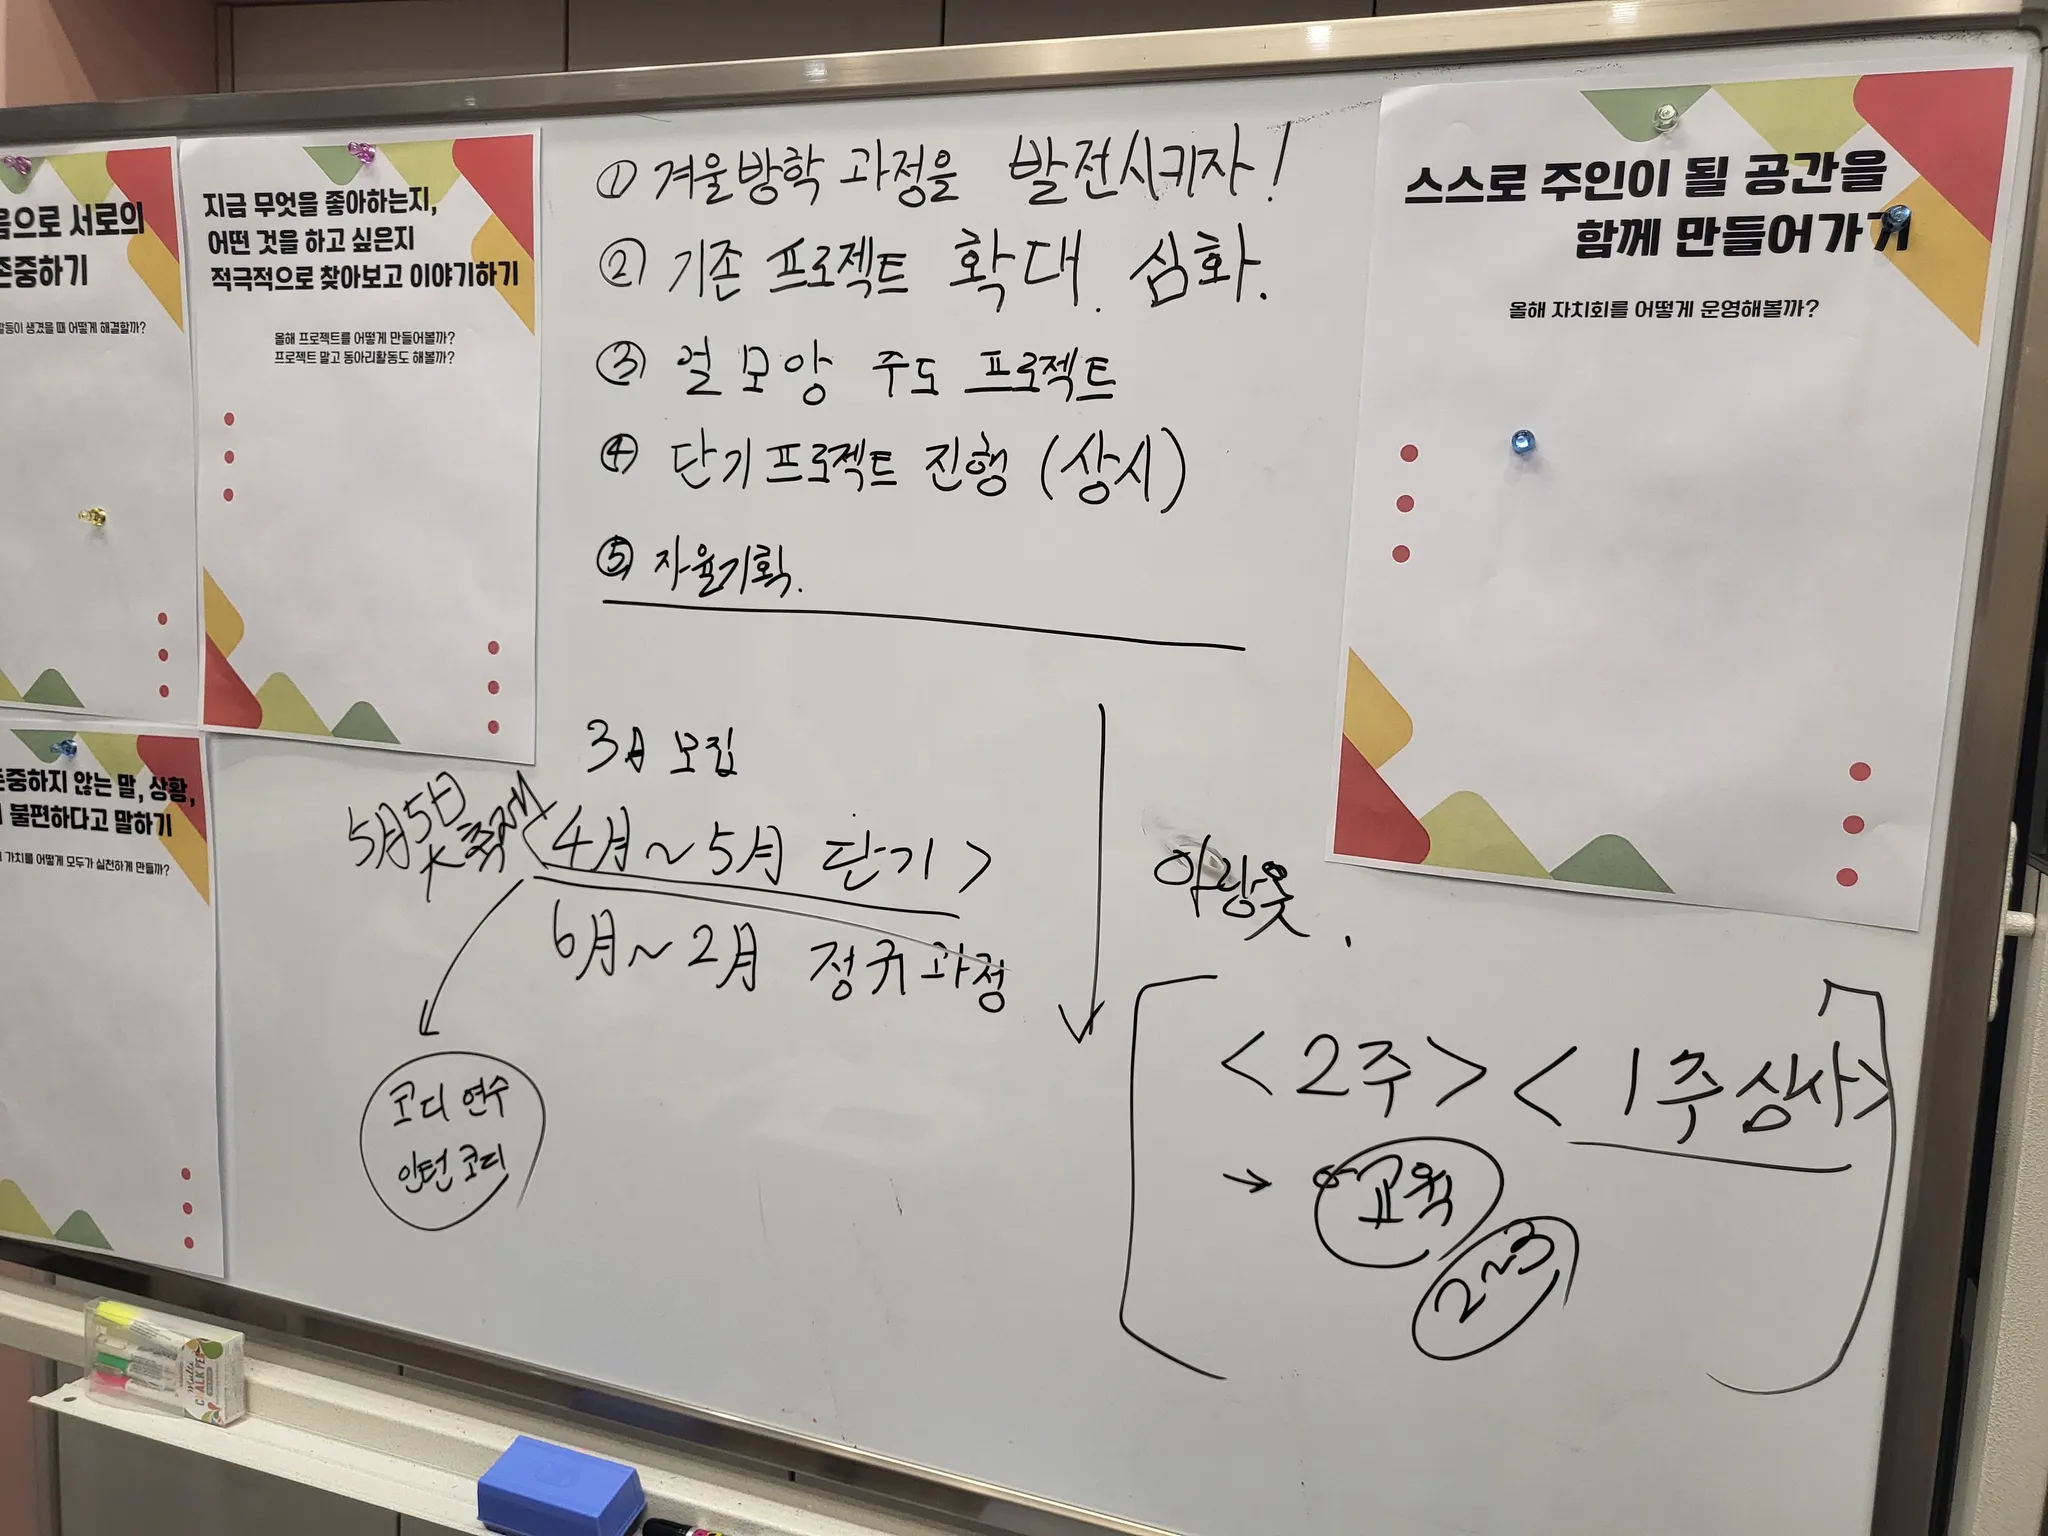 음으로 서로의
존중하기
갈등이 생겼을 때 어떻게 해결할까?
지금 무엇을 좋아하는지,
어떤 것을 하고 싶은지
적극적으로 찾아보고 이야기하기
올해 프로젝트를 어떻게 만들어볼까?
프로젝트 말고 동아리활동도 해볼까?
① 겨울방학 과정을 발전시키자!
② 기존 프로젝트 확대. 심화.
③ 얼모앙 주도 프로젝트
④ 단기프로젝트 진행 (상시)
⑤ 자율기획.
스스로 주인이 될 공간을
함께 만들어가기
올해 자치회를 어떻게 운영해볼까?
존중하지 않는 말, 상황,
불편하다고 말하기
가치를 어떻게 모두가 실천하게 만들까?
3月 모집
5月5日 축제
4月~5月 단기 >
6月~2月 정규과정
코디 연수
인턴 코디
<2주> <1주 상시>
→ 교육
2~3
Multi
CHALK PEN